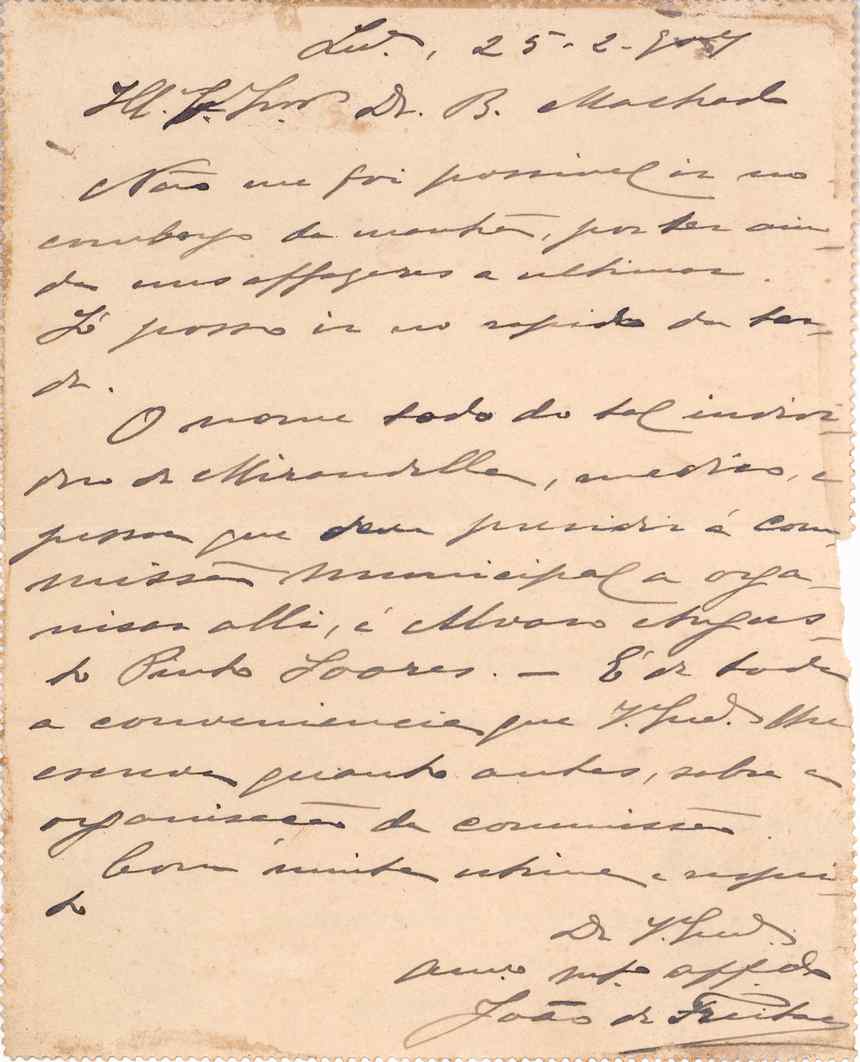 25-2-907
Ill. Dr. B. Machado
Não me foi possivel ir no
comboyo da manhã, por ter ain-
da uns affazeres a ultimar.
Só posso ir no rapido da tar-
de.
O nome todo do tal indivi-
duo de Mirandella, medico, e
pessoa que deve presidir á com-
missão municipal a orga-
nisar alli, é Alvaro Augus-
to Pinto Soares. — É de toda
a conveniencia que V. lhe
escreva quanto antes, sobre a
organisação da commissão.
Com muita estima e respei-
to
De V.
am.o mt.o
João de Freitas